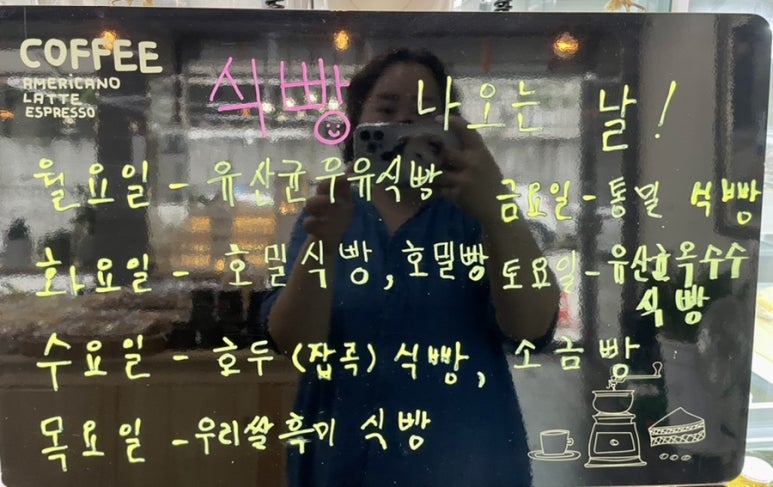 COFFEE
AMERICANO
LATTE
ESPRESSO
식빵 나오는 날!
월요일 - 유산균우유식빵
화요일 - 호밀식빵, 호밀빵
수요일 - 호두(잡곡) 식빵, 소금빵
목요일 - 우리쌀흑미 식빵
금요일 - 통밀 식빵
토요일 - 유산균옥수수
식빵